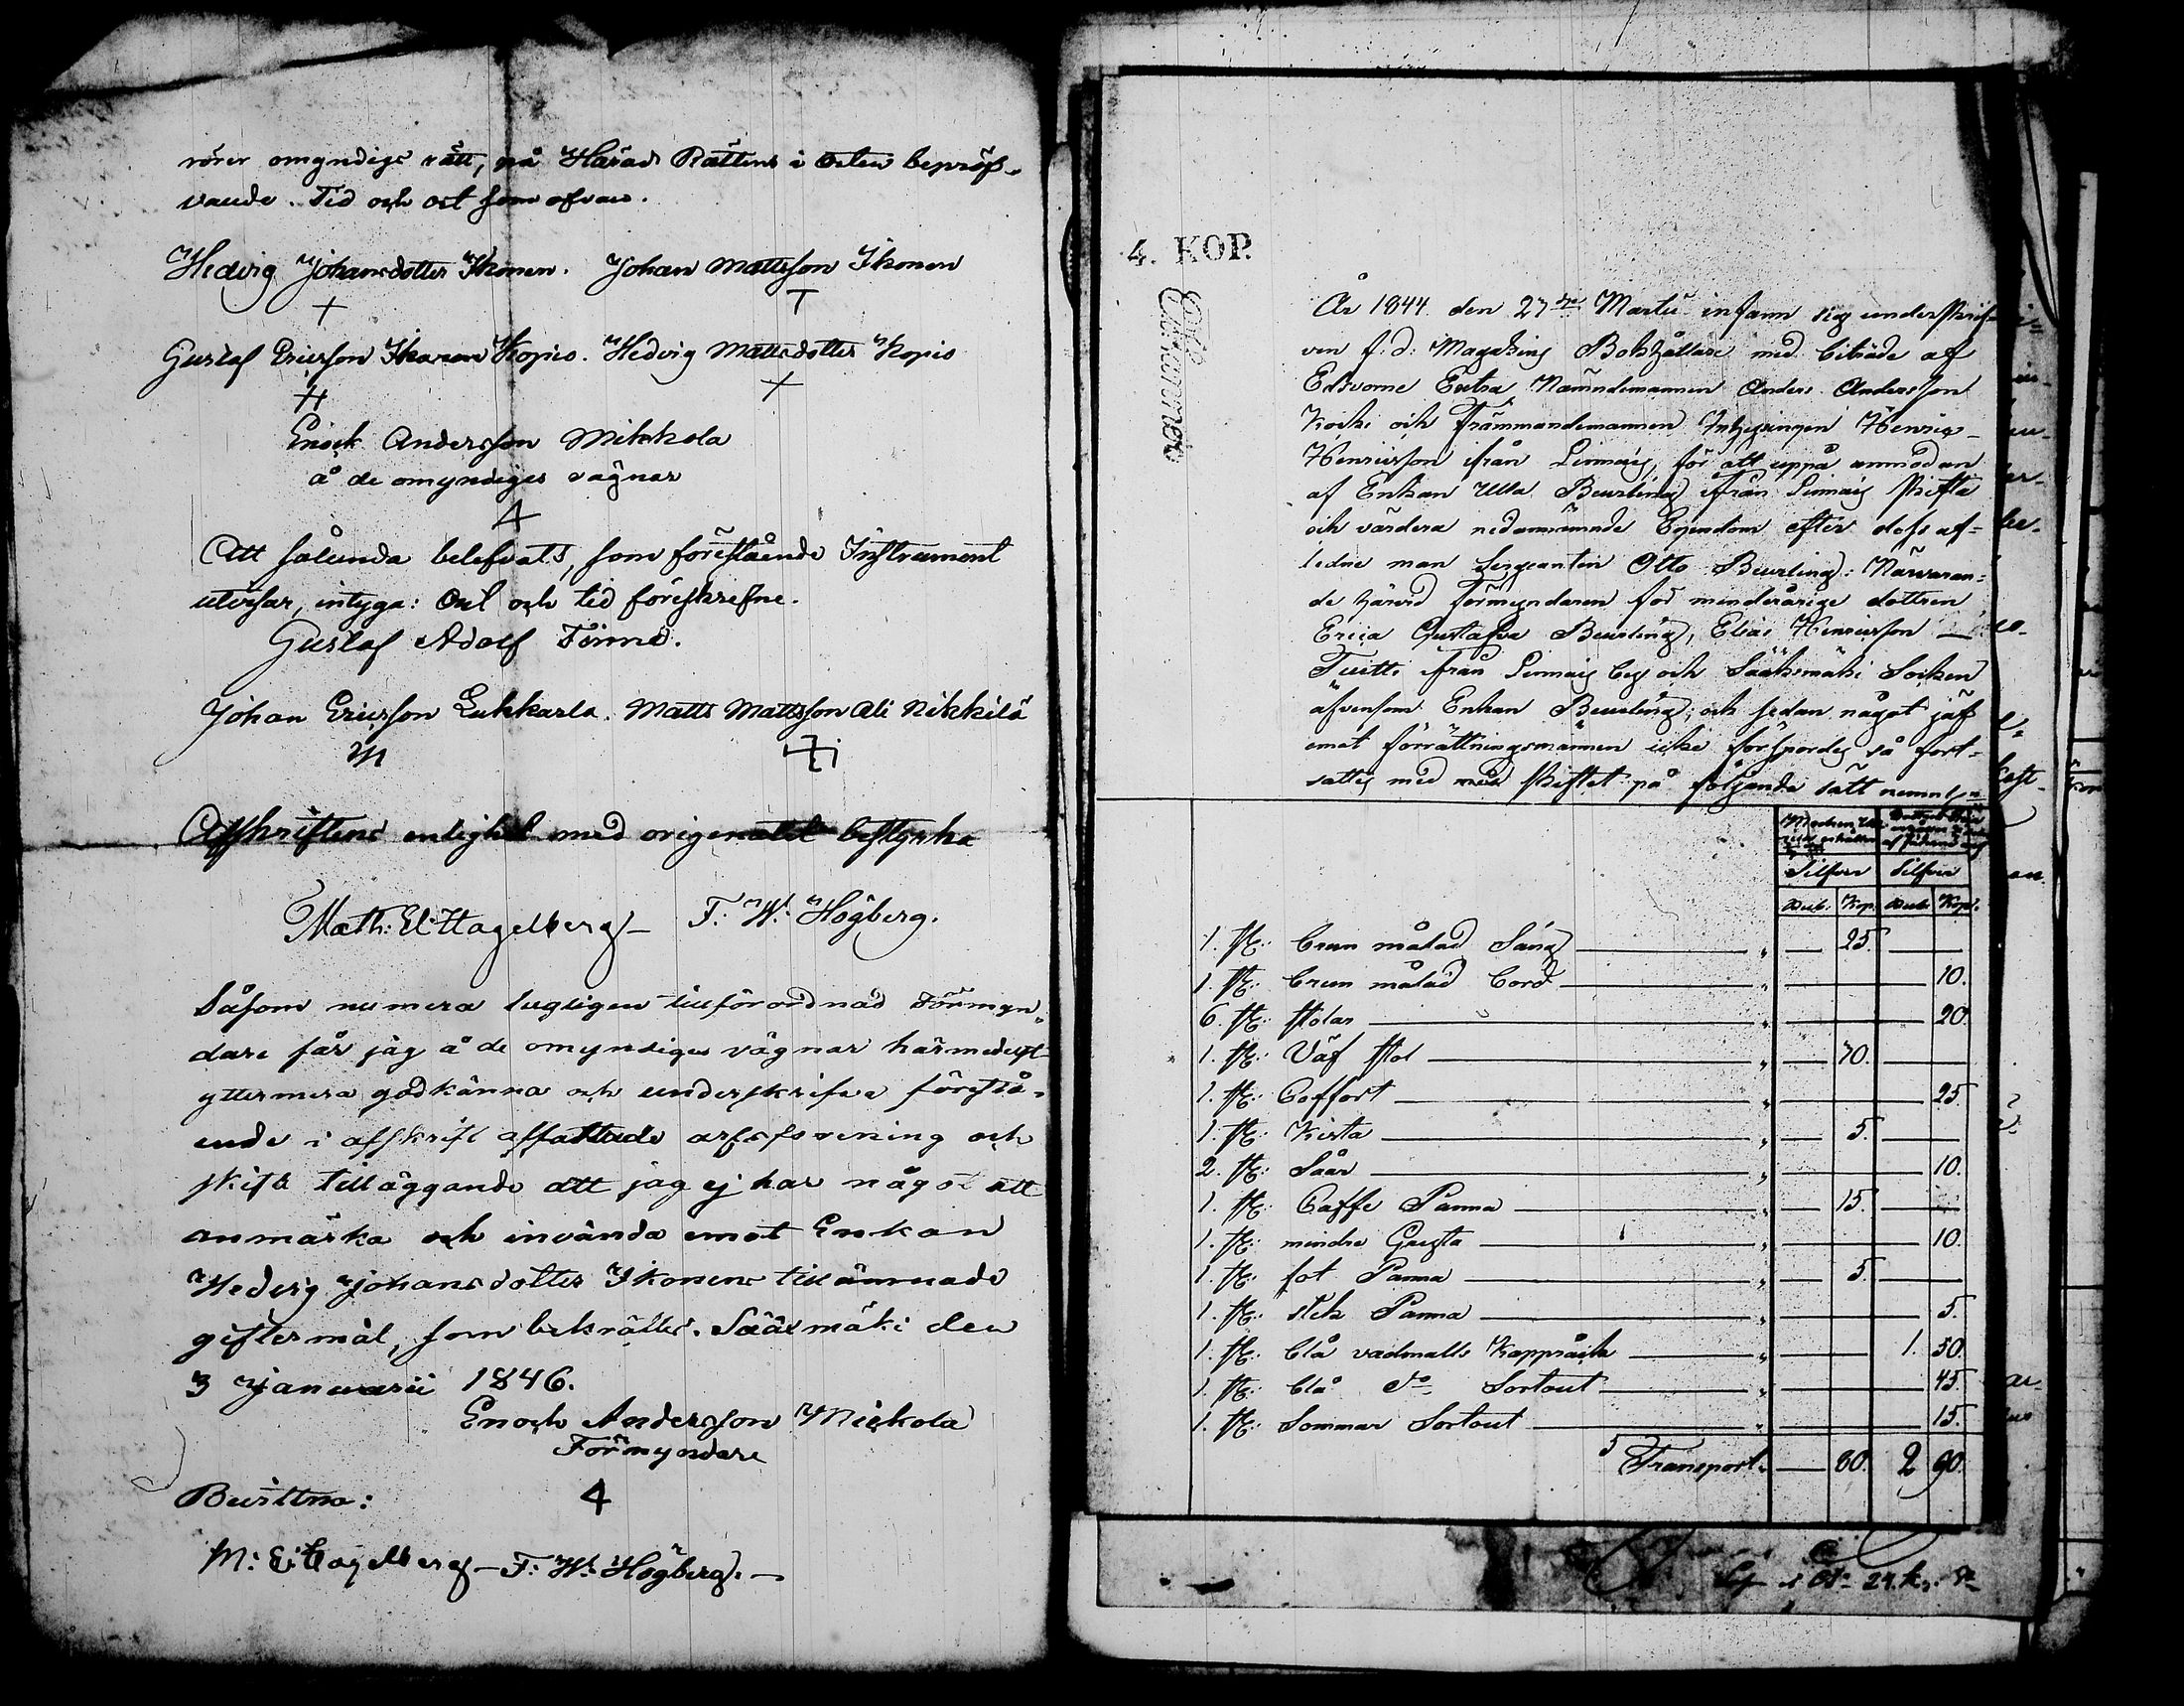 rörer omyndigs rätt, på Härads Rättens i Orten bepröf-
vande. Tid och ort som ofvan.
Hedvig Johansdotter Ikonen. Johan Mattsson Ikonen
Gustaf Ericsson Ikonen Kopio. Hedvig Mattsdotter Kopio
Enock Andersson Mikkola
å de omyndiges vägnar
Att sålunda belefvats, som förestående Instrument
utvisar, intyga: Ort och tid föreskrefne.
Gustaf Adolf
Johan Ericsson Lukkarla. Matts Mattsson Ali Nikkilä
Afskriftens enlighet med originalet bestyrka
Math: El: Hagelberg - F: W: Högberg.
Såsom numera lagligen tillförordnad Förmyn-
dare får jag å de omyndiges vägnar härmedelst
yttermera godkänna och underskrifva förestå-
ende i afskrift affattade arfsförening och
skift tilläggande att jag ej har något att
anmärka och invända emot Enkan
Hedvig Johansdotter Ikonens tillämnade
giftermål, som bekräftes. Sääxmäki den
3 Januarii 1846.
Enoch Andersson Mickola
Förmyndare
4
Bevittna:
M: E: Hagelberg - F: W: Högberg. -
4. KOP.
År 1844 den 27de Martii infann sig underskrif-
ven f. d. Magasins Bokhållare med biträde af
Edsvorne Extra Nämndemannen Anders Andersson
Koski och Främmandemannen Inhysingen Henric
Henricsson ifrån Linnais, för att uppå anmodan
af Enkan Ulla Beurling ifrån Linnais skifta
och värdera nedannämnde Egendom efter dess af-
ledne man Sergeanten Otto Beurling: Närvaran-
de härvid Förmyndaren för minderårige dottren
Erica Gustafva Beurling, Elias Henricsson
Tuitti från Linnais by och Sääksmäki Socken
äfvensom Enkan Beurling; och sedan något jäf
emot förrättningsmännen icke förspordes så fort-
sattes med skiftet på följande sätt nemnl:n
Silfver Silfver
Rub. Kop. Rub. Kop.
1. st: brun målad Säng 25.
1. st: brun målad bord 10.
6. st: stolar 20.
1. st: Väf stol 70.
1. st: Coffort 25.
1. st: Kista 5.
2. st: Såar 10.
1. st: Caffe Panna 15.
1. st: mindre Gryta 10.
1. st: fot Panna 5.
1. st: stek Panna 5.
1. st: blå vadmalls Kappråck 1. 50.
1. st: blå do Sortout 45.
1. st: Sommar Sortout 15.
Transport. 80. 2 90.